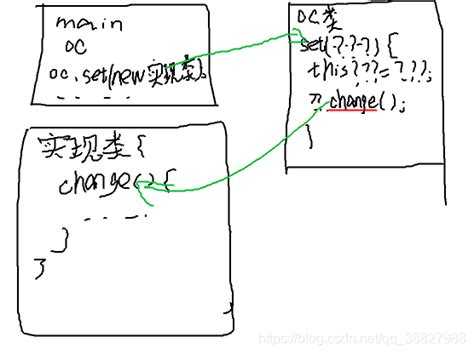 main
oc
oc.set(new 实现类);
oc类
set(? ? ?) {
this.???=???;
??.change();
}
实现类{
change() {
}
}
https://blog.csdn.net/qq_38827988